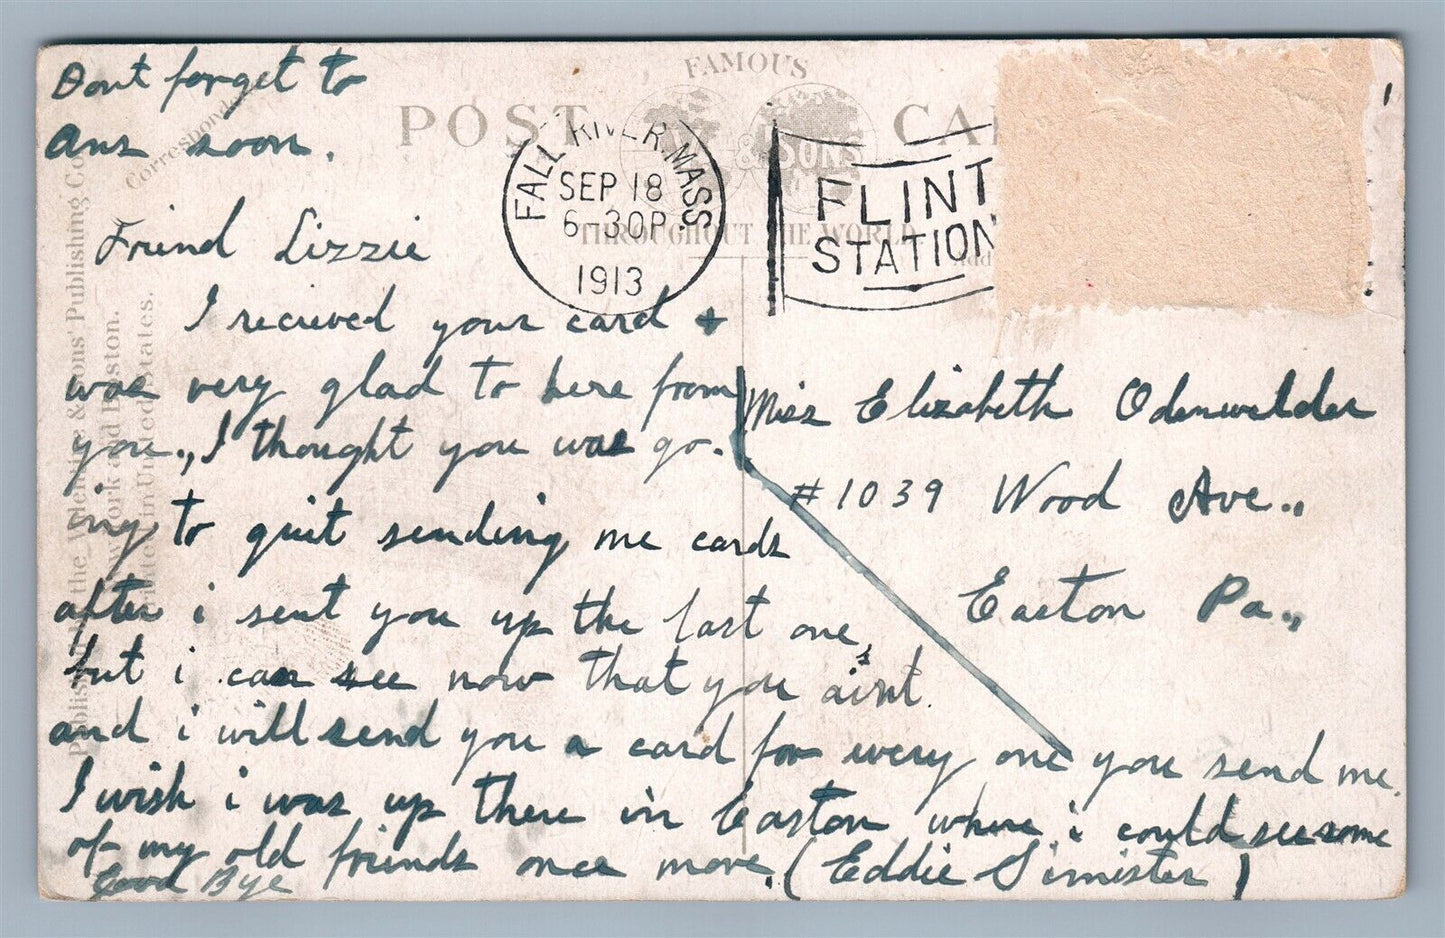 Dont forget to
Ans soon.
FAMOUS
POST CA
& SONS
THROUGHOUT THE WORLD
FALL RIVER, MASS.
SEP 18
6-30P.
1913
FLINT
STATION
Friend Lizzie
I recieved your card +
was very glad to here from
you., I thought you was go-
ing to quit sending me cards
after i sent you up the last one,
but i can see now that you aint.
and i will send you a card for every one you send me.
I wish i was up there in Easton where i could see some
of my old friends once more. (Eddie Simister)
Good Bye
Miss Elizabeth Odenwelder
#1039 Wood Ave.,
Easton Pa.,
Correspond
Sons' Publishing Co.
York and Boston.
in United States.